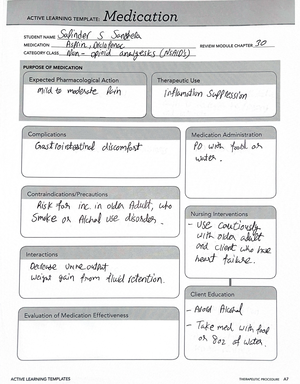 ACTIVE LEARNING TEMPLATE: Medication
STUDENT NAME Safinder S Sanghera
MEDICATION Asprin, Diclofenac REVIEW MODULE CHAPTER 30
CATEGORY CLASS Non-opioid analgesics (NSAIDs)
PURPOSE OF MEDICATION
Expected Pharmacological Action
mild to moderate Pain
Therapeutic Use
Inflamation Suppression
Complications
Gastrointestinal discomfort
Medication Administration
PO with food or
water.
Contraindications/Precautions
Risk for inc. in older Adult, who
Smoke or Alchol use disorder.
Nursing Interventions
- Use cautiously
with older adult
and client who have
heart failure.
Interactions
Decrease urine output
weight gain from fluid retention.
Client Education
- Avoid Alcohol
- Take med with food
or 8oz of water.
Evaluation of Medication Effectiveness
ACTIVE LEARNING TEMPLATES THERAPEUTIC PROCEDURE A7